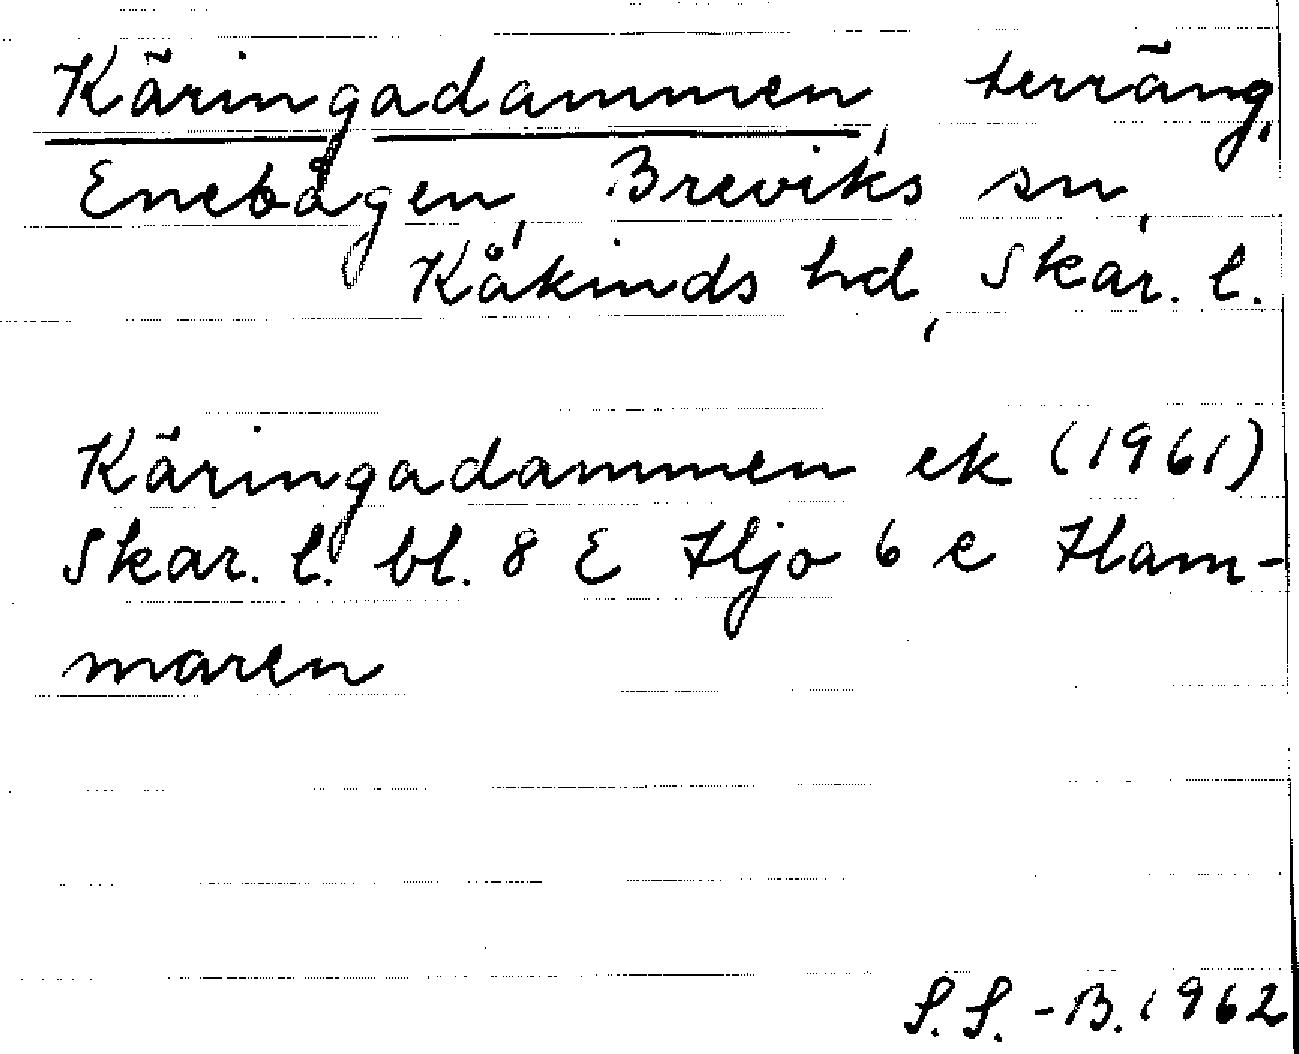 Käringadammen, terräng,
Enebågen, Breviks sn,
Kåkinds hd, Skar. l.
Käringadammen ek (1961)
Skar. l. bl. 8 E Hjo 6 e Ham-
maren
S. S. - B. 1962